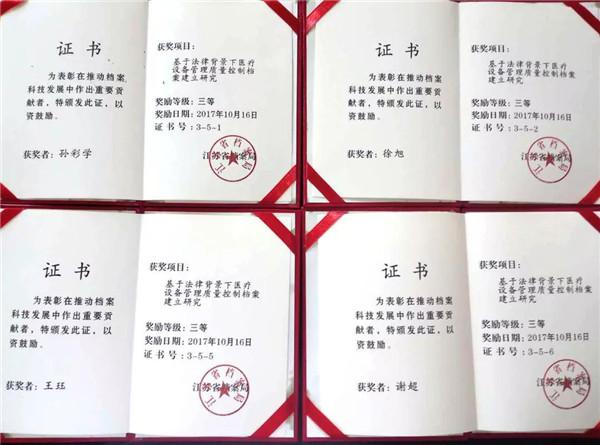 证书
为表彰在推动档案
科技发展中作出重要贡
献者，特颁发此证，以
资鼓励。
获奖者：孙彩学
获奖项目：
基于法律背景下医疗
设备管理质量控制档案
建立研究
奖励等级：三等
奖励日期：2017年10月16日
证书号：3-5-1
江苏省档案局
证书
为表彰在推动档案
科技发展中作出重要贡
献者，特颁发此证，以
资鼓励。
获奖者：徐旭
获奖项目：
基于法律背景下医疗
设备管理质量控制档案
建立研究
奖励等级：三等
奖励日期：2017年10月16日
证书号：3-5-2
江苏省档案局
证书
为表彰在推动档案
科技发展中作出重要贡
献者，特颁发此证，以
资鼓励。
获奖者：王珏
获奖项目：
基于法律背景下医疗
设备管理质量控制档案
建立研究
奖励等级：三等
奖励日期：2017年10月16日
证书号：3-5-5
江苏省档案局
证书
为表彰在推动档案
科技发展中作出重要贡
献者，特颁发此证，以
资鼓励。
获奖者：谢超
获奖项目：
基于法律背景下医疗
设备管理质量控制档案
建立研究
奖励等级：三等
奖励日期：2017年10月16日
证书号：3-5-6
江苏省档案局